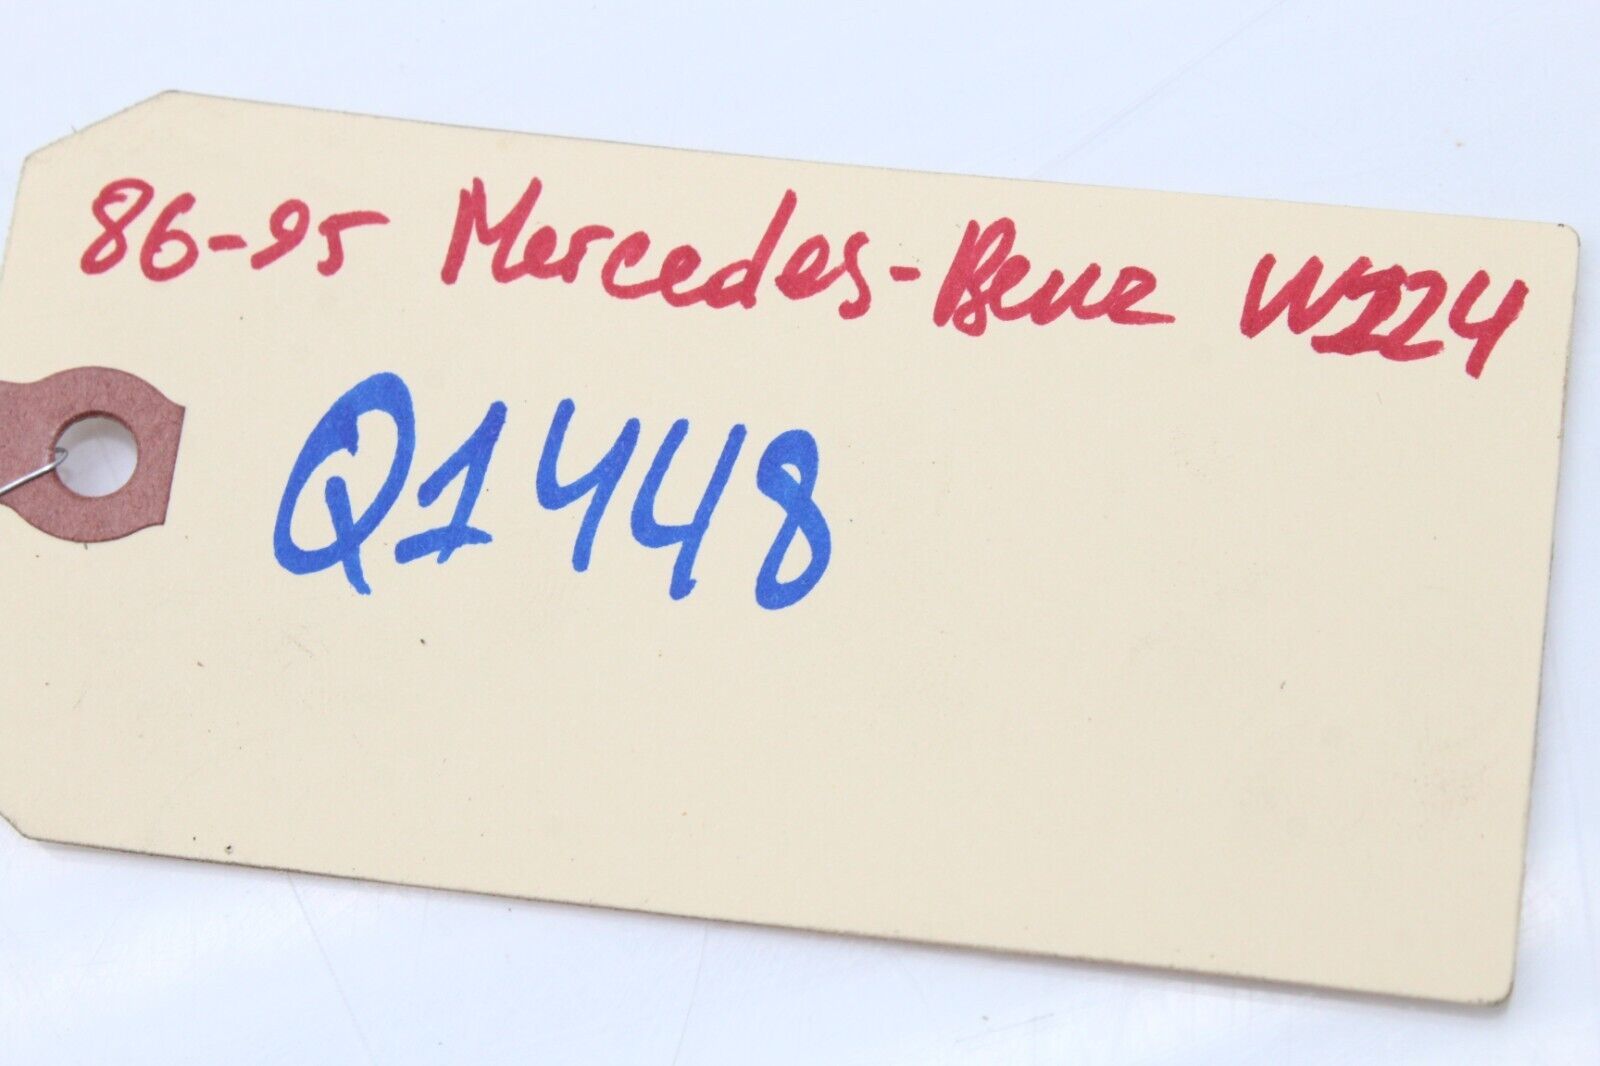 86-95 Mercedes-Benz W124
Q1448